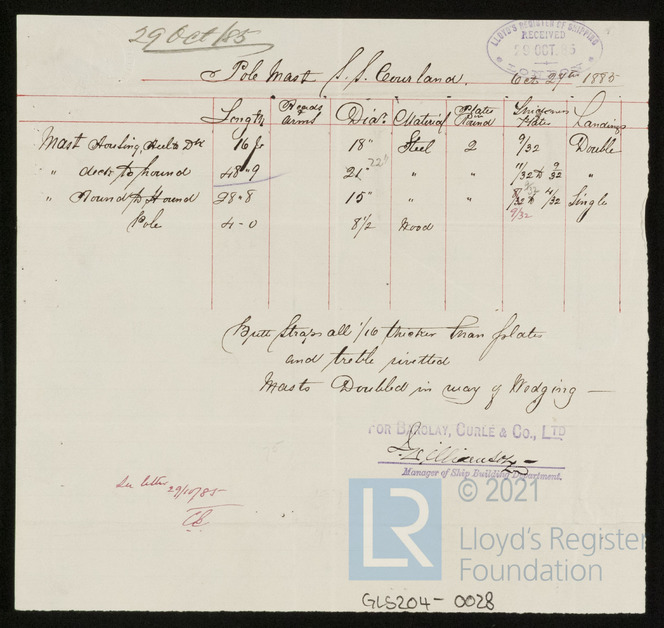 29 Oct/85
LLOYD'S REGISTER OF SHIPPING
RECEIVED
29 OCT. 85
LONDON
Pole Mast S.S. Courland. Oct. 27th 1885
Length Heads & Arms Diar. Material Plates in Round Thickness Plates Landings
Mast Housing, Heel to Dk 16 18" Steel 2 9/32 Double
" deck to hound 48"9 21" 22" " " 11/32 to 9/32 "
" Hound to Hound 28"8 15" " " 8/32 to /32 Single
9/32
Pole 4-0 8 1/2 Wood
Butt Straps all 1/16 thicker than plates
and treble rivetted
Masts Doubled in way of Wedging —
FOR BARCLAY, CURLE & CO., LTD
Williamson
Manager of Ship Building Department.
75
See letter 29/10/85
© 2021
LR
Lloyd's Register
Foundation
GLS204-0028